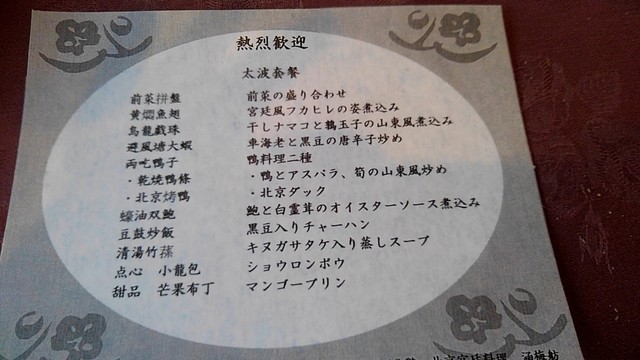 熱烈歓迎
太波套餐
前菜拼盤 前菜の盛り合わせ
黄燜魚翅 宮廷風フカヒレの姿煮込み
烏龍戯珠 干しナマコと鶉玉子の山東風煮込み
避風塘大蝦 車海老と黒豆の唐辛子炒め
両吃鴨子 鴨料理二種
・乾焼鴨條 ・鴨とアスパラ、筍の山東風炒め
・北京烤鴨 ・北京ダック
蠔油双鮑 鮑と白霊茸のオイスターソース煮込み
豆鼓炒飯 黒豆入りチャーハン
清湯竹蓀 キヌガサタケ入り蒸しスープ
点心 小龍包 ショウロンポウ
甜品 芒果布丁 マンゴープリン
北京宮廷料理 涵梅舫